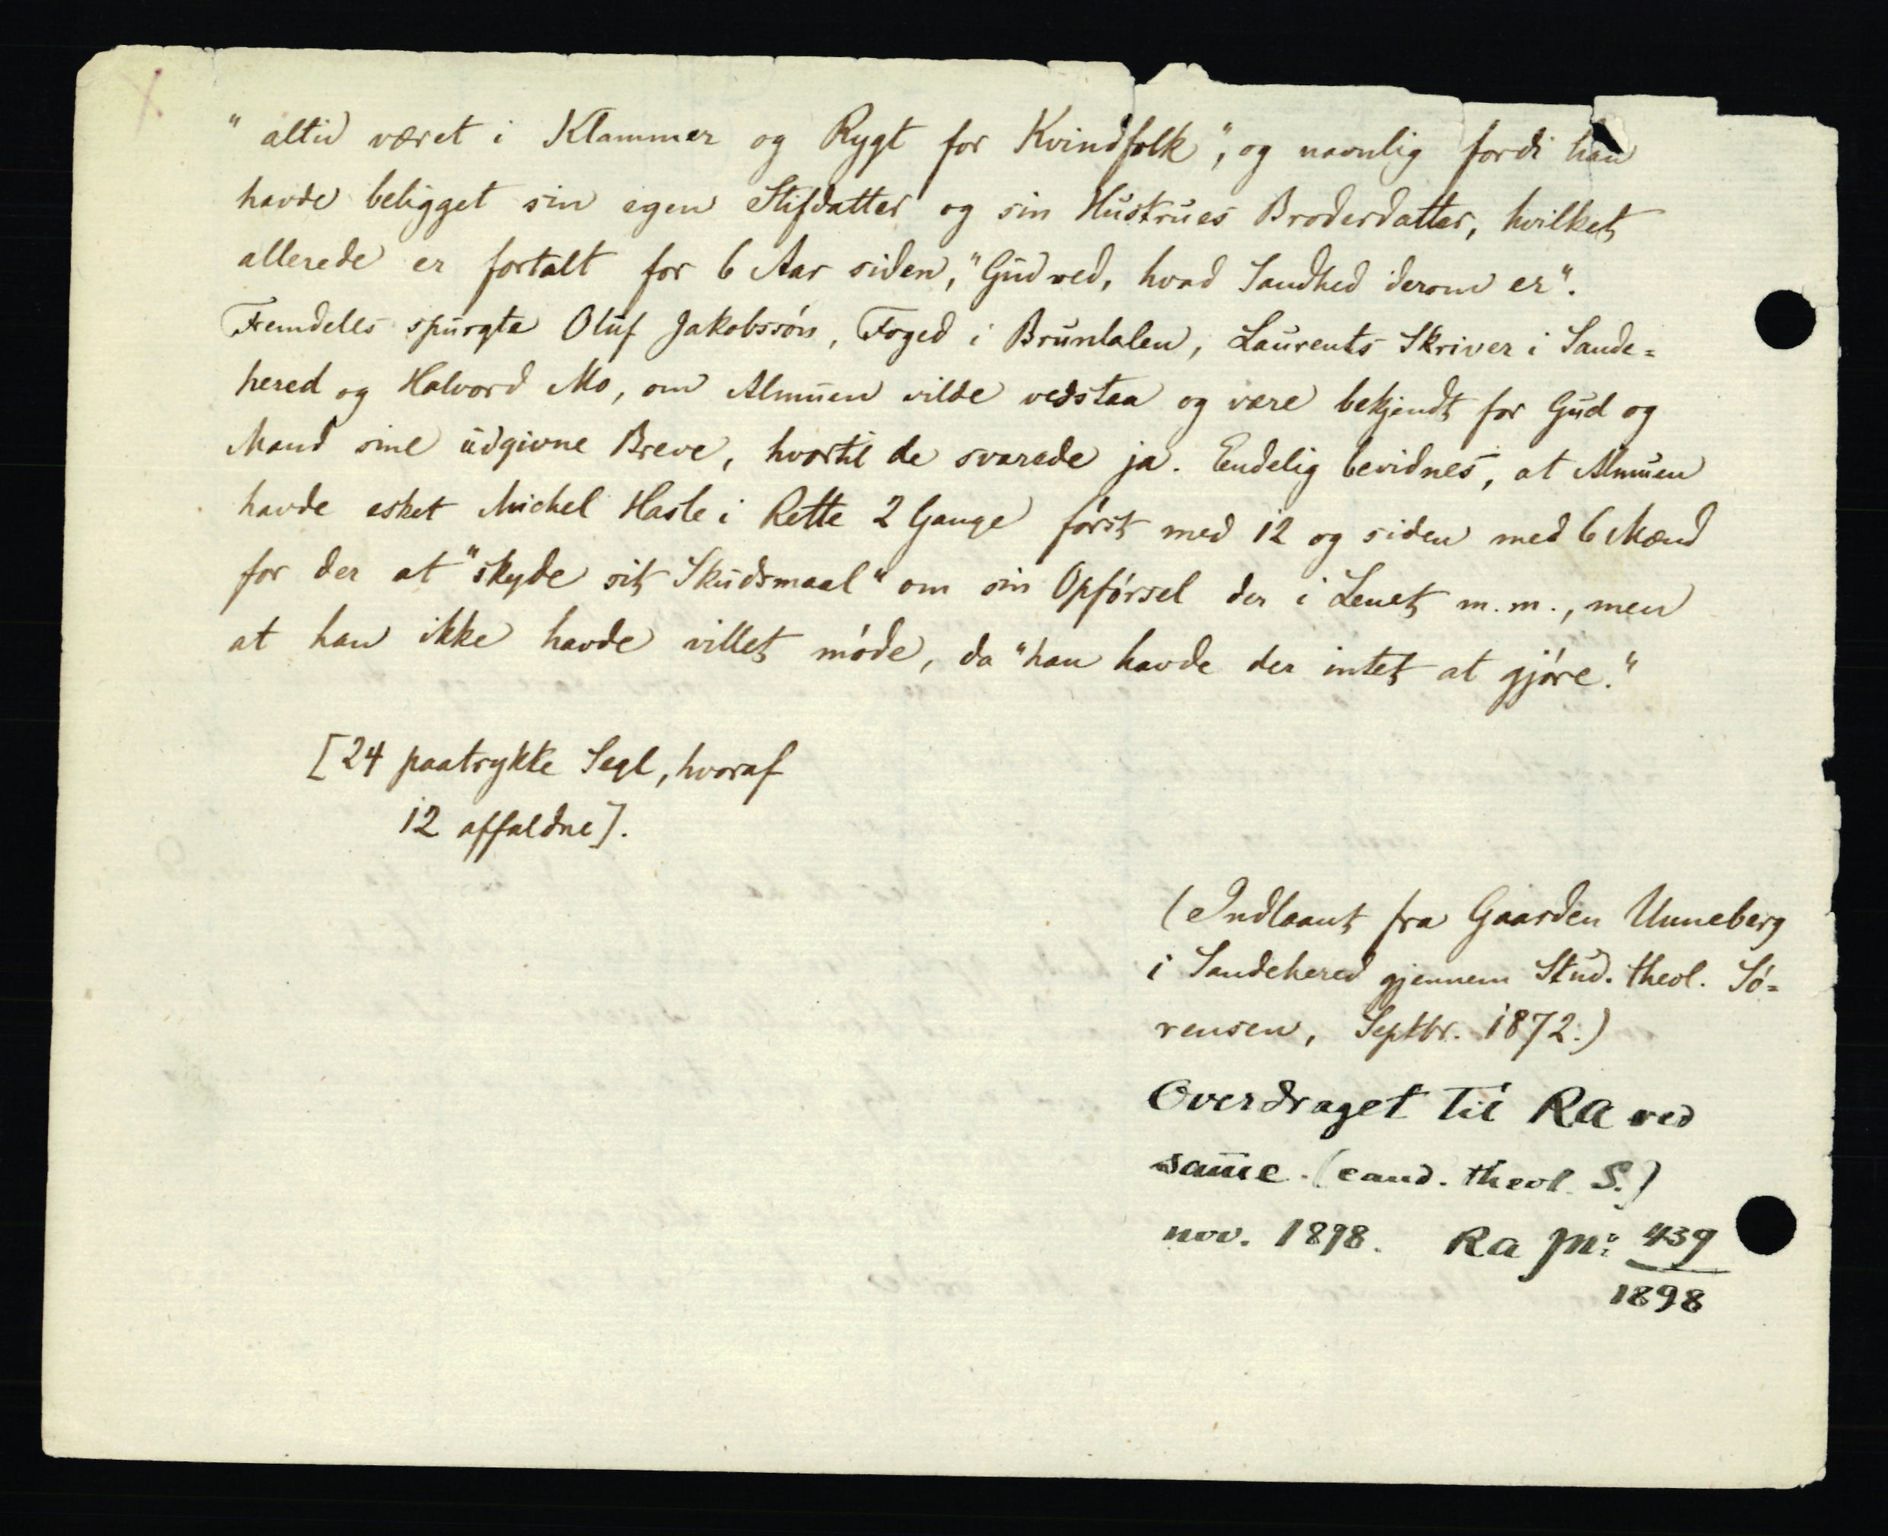 " altid været i Klammer og Rygt for Kvindfolk", og navnlig fordi han
havde beligget sin egen Stifdatter og sin Hustrues Broderdatter, hvilket
allerede er fortalt for 6 Aar siden, "Gud ved, hvad Sandhed derom er".
Fremdeles spurgte Oluf Jakobssön, Foged i Brunlalen, Laurents Skriver i Sande=
hered og Halvord Mo, om Almuen vilde vedstaa og være bekjendt for Gud og
Mand sine udgivne Breve, hvortil de svarede ja. Endelig bevidnes, at Almuen
havde esket Michel Hasle i Rette 2 Gange först med 12 og siden med 6 Mænd
for der at "skyde sit Skudsmaal" om sin Opförsel der i Lenet m.m., men
at han ikke havde villet möde, da "han havde der intet at gjöre."
[24 paatrykte Segl, hvoraf
12 affaldne].
(Indlaant fra Gaarden Unneberg
i Sandehered gjennem Stud. theol. Sö=
rensen, Septbr. 1872.)
Overdraget til RA ved
samme (cand. theol. S.)
nov. 1898. RA jn: 439
1898